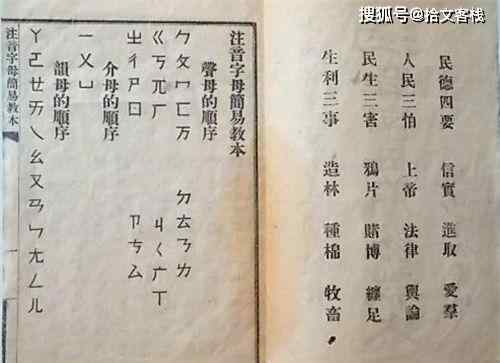 搜狐号@拾文客栈
民德四要 信實 進取 愛羣
人民三怕 上帝 法律 輿論
民生三害 鴉片 賭博 纏足
生利三事 造林 種棉 牧畜。
注音字母簡易教本
聲母的順序
ㄅㄆㄇㄈㄪ ㄉㄊㄋㄌ
ㄍㄎㄫㄏ ㄐㄑㄬㄒ
ㄓㄔㄕㄖ ㄗㄘㄙ
介母的順序
一ㄨㄩ
韻母的順序
ㄚㄛㄝㄞㄟㄠㄡㄢㄣㄤㄥㄦ
注音字母簡易教本
一